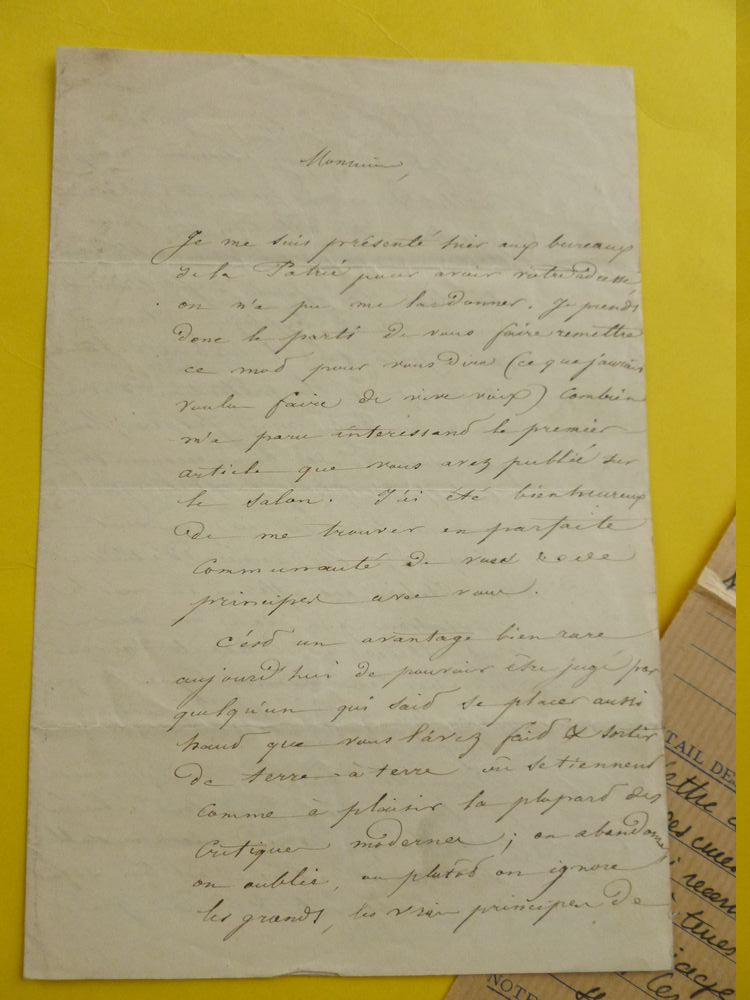 Monsieur,
Je me suis présenté hier aux bureaux
de la Patrie pour avoir votre adresse,
on n'a pu me la donner. Je prends
donc le parti de vous faire remettre
ce mot pour vous dire (ce que j'aurais
voulu faire de vive voix) combien
m'a paru interessant le premier
article que vous avez publié sur
le salon. J'ai été bien heureux
de me trouver en parfaite
communauté de vues & de
principes avec vous.
C'est un avantage bien rare
aujourd'hui de pouvoir être jugé par
quelqu'un qui sait se placer aussi
haut que vous l'avez fait & sortir
de terre-à-terre où se tiennent
comme à plaisir la plupart des
critiques modernes; on abandonne,
on oublie, ou plutôt on ignore
les grands, les vrais principes de
TAIL DE
NOTE